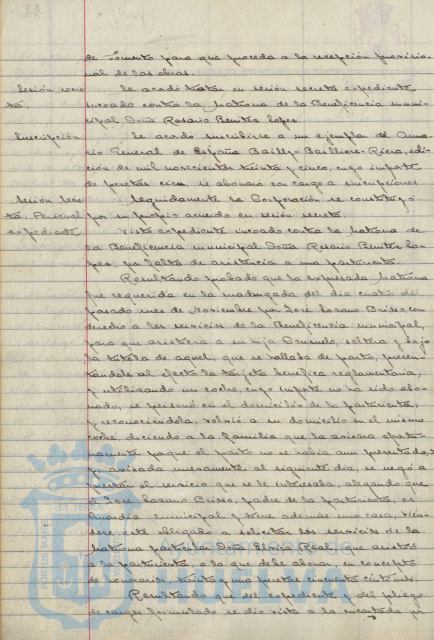 de Fomento para que proceda a la recepción provisio-
nal de las obras.
Sesión secre-
ta.
Se acordó tratar en sesión secreta expediente
incoado contra la Matrona de la Beneficencia muni-
cipal Doña Rosario Benitez López.
Suscripción
Se acordó suscribirse a un ejemplar del Anua-
rio General de España Bailly-Bailliere-Riera, edi-
ción de mil novecientos treinta y cinco, cuyo importe
de pesetas cien se abonará con cargo a suscripciones
Sesión secre-
ta. Personal
expediente
Seguidamente la Corporación se constituyó
por su propio acuerdo en sesión secreta.
Visto expediente incoado contra la Matrona de
la Beneficencia municipal Doña Rosario Benitez Ló-
pez, por falta de asistencia a una parturienta.
Resultando probado que la expresada Matrona
fué requerida en la madrugada del día cuatro del
pasado mes de Noviembre por José Lozano Brioso, con
derecho a los servicios de la Beneficencia municipal,
para que asistiera a su hija Consuelo, soltera y bajo
la tutela de aquel, que se hallaba de parto, presen-
tándole al efecto la tarjeta benéfica reglamentaria,
y utilizando un coche, cuyo importe no ha sido abo-
nado, se personó en el domicilio de la parturienta,
y reconociéndola, volvió a su domicilio en el mismo
coche, diciendo a la familia que la avisara oportu-
namente porque el parto no se había aun presentado,
y avisada nuevamente al siguiente día, se negó a
prestar el servicio que se le interesaba, alegando que
el José Lozano Brioso, padre de la parturienta, es
Guardia municipal y tiene además una casa, vién-
dose este obligado a solicitar los servicios de la
Matrona particular Doña Elvira Real, que asistió
a la parturienta, a la que debe abonar, en concepto
de honorarios, treinta y una pesetas cincuenta céntimos.
Resultando que del expediente y del pliego
de cargos formulado se dió vista a la encartada por